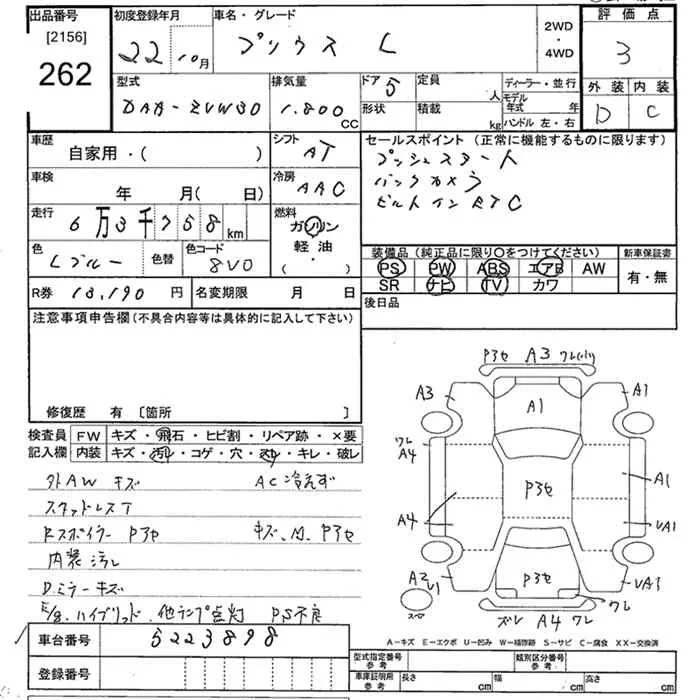 出品番号 初度登録年月 車名・グレード 2WD・4WD 評価点
[2156]
262
22 10月 プリウス L 3
型式 排気量 ドア 5 定員 人 ディーラー・並行 外装 内装
DAA-ZVW30 1.800 CC 形状 積載 kg モデル年式 年 D C
ハンドル 左・右
車歴 シフト セールスポイント (正常に機能するものに限ります)
自家用・( ) AT プッシュスタート
車検 冷房 バックカメラ
年 月( 日) AAC ビルトインETC
走行 燃料
6万3千758km ガソリン
色 色替 色コード 軽油
Lブルー 8V0 (・)
装備品 (純正品に限り○をつけてください) 新車保証書
PS PW ABS エアB AW 有・無
SR ナビ TV カワ
R券 13,190円 名変期限 月 日 後日品
注意事項申告欄 (不具合内容等は具体的に記入して下さい)
修復歴 有 [箇所 ]
検査員記入欄 FW キズ・飛石・ヒビ割・リペア跡・×要
内装 キズ・汚れ・コゲ・穴・スレ・キレ・破レ
外AW キズ AC冷えず
スタッドレスT
Rスポイラー P3セ キズ、凹、P3セ
内装 汚れ
Dミラーキズ
E/g.ハイブリッド.他ランプ点灯 PS不良
車台番号 5223898
登録番号
P3セ A3 ワレ
A3 A1 A1
ワレ A4 A1
P3セ
A4 UA1
A2 U1 P3セ UA1
スペア ワレ
ズレ A4 ワレ
A-キズ E-エクボ U-凹み W-補修跡 S-サビ C-腐食 XX-交換済
型式指定番号 参考 類別区分番号 参考
車庫証明用 参考 長さ cm 幅 cm 高さ cm